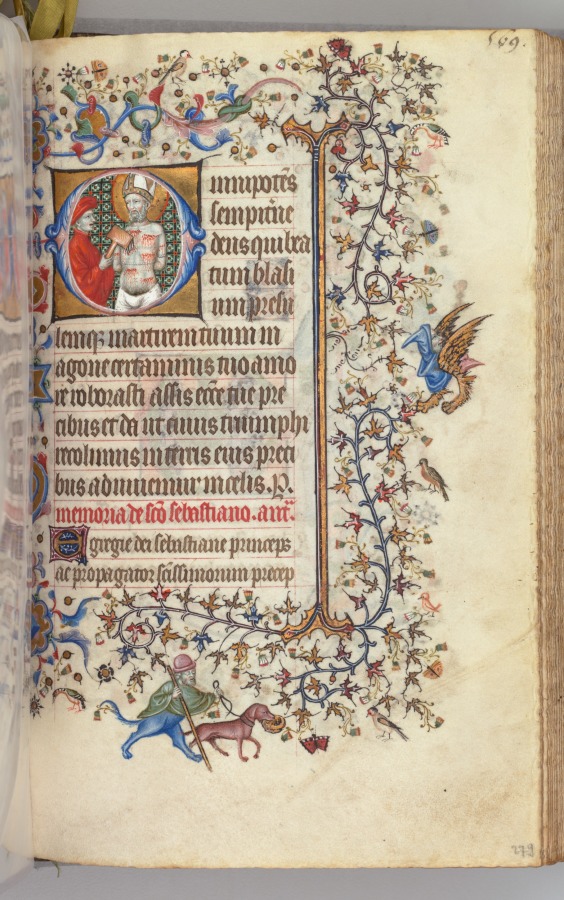 559.
Omnipotēs
sempit̄ne
deus qui bea
tum blasi
um presu
lemqȝ martirem tuum in
agone certaminis tuo amo
re roborasti assis ecc̄e tue pre
cibus et da ut cuius triumphi
recolimus in terris eius preci
bus adiuuemur in celis. P.
memoria de sc̄o sebastiano. ant̄.
Egregie dei sebastiane princeps
ac propagator sc̄issimorum precep
279